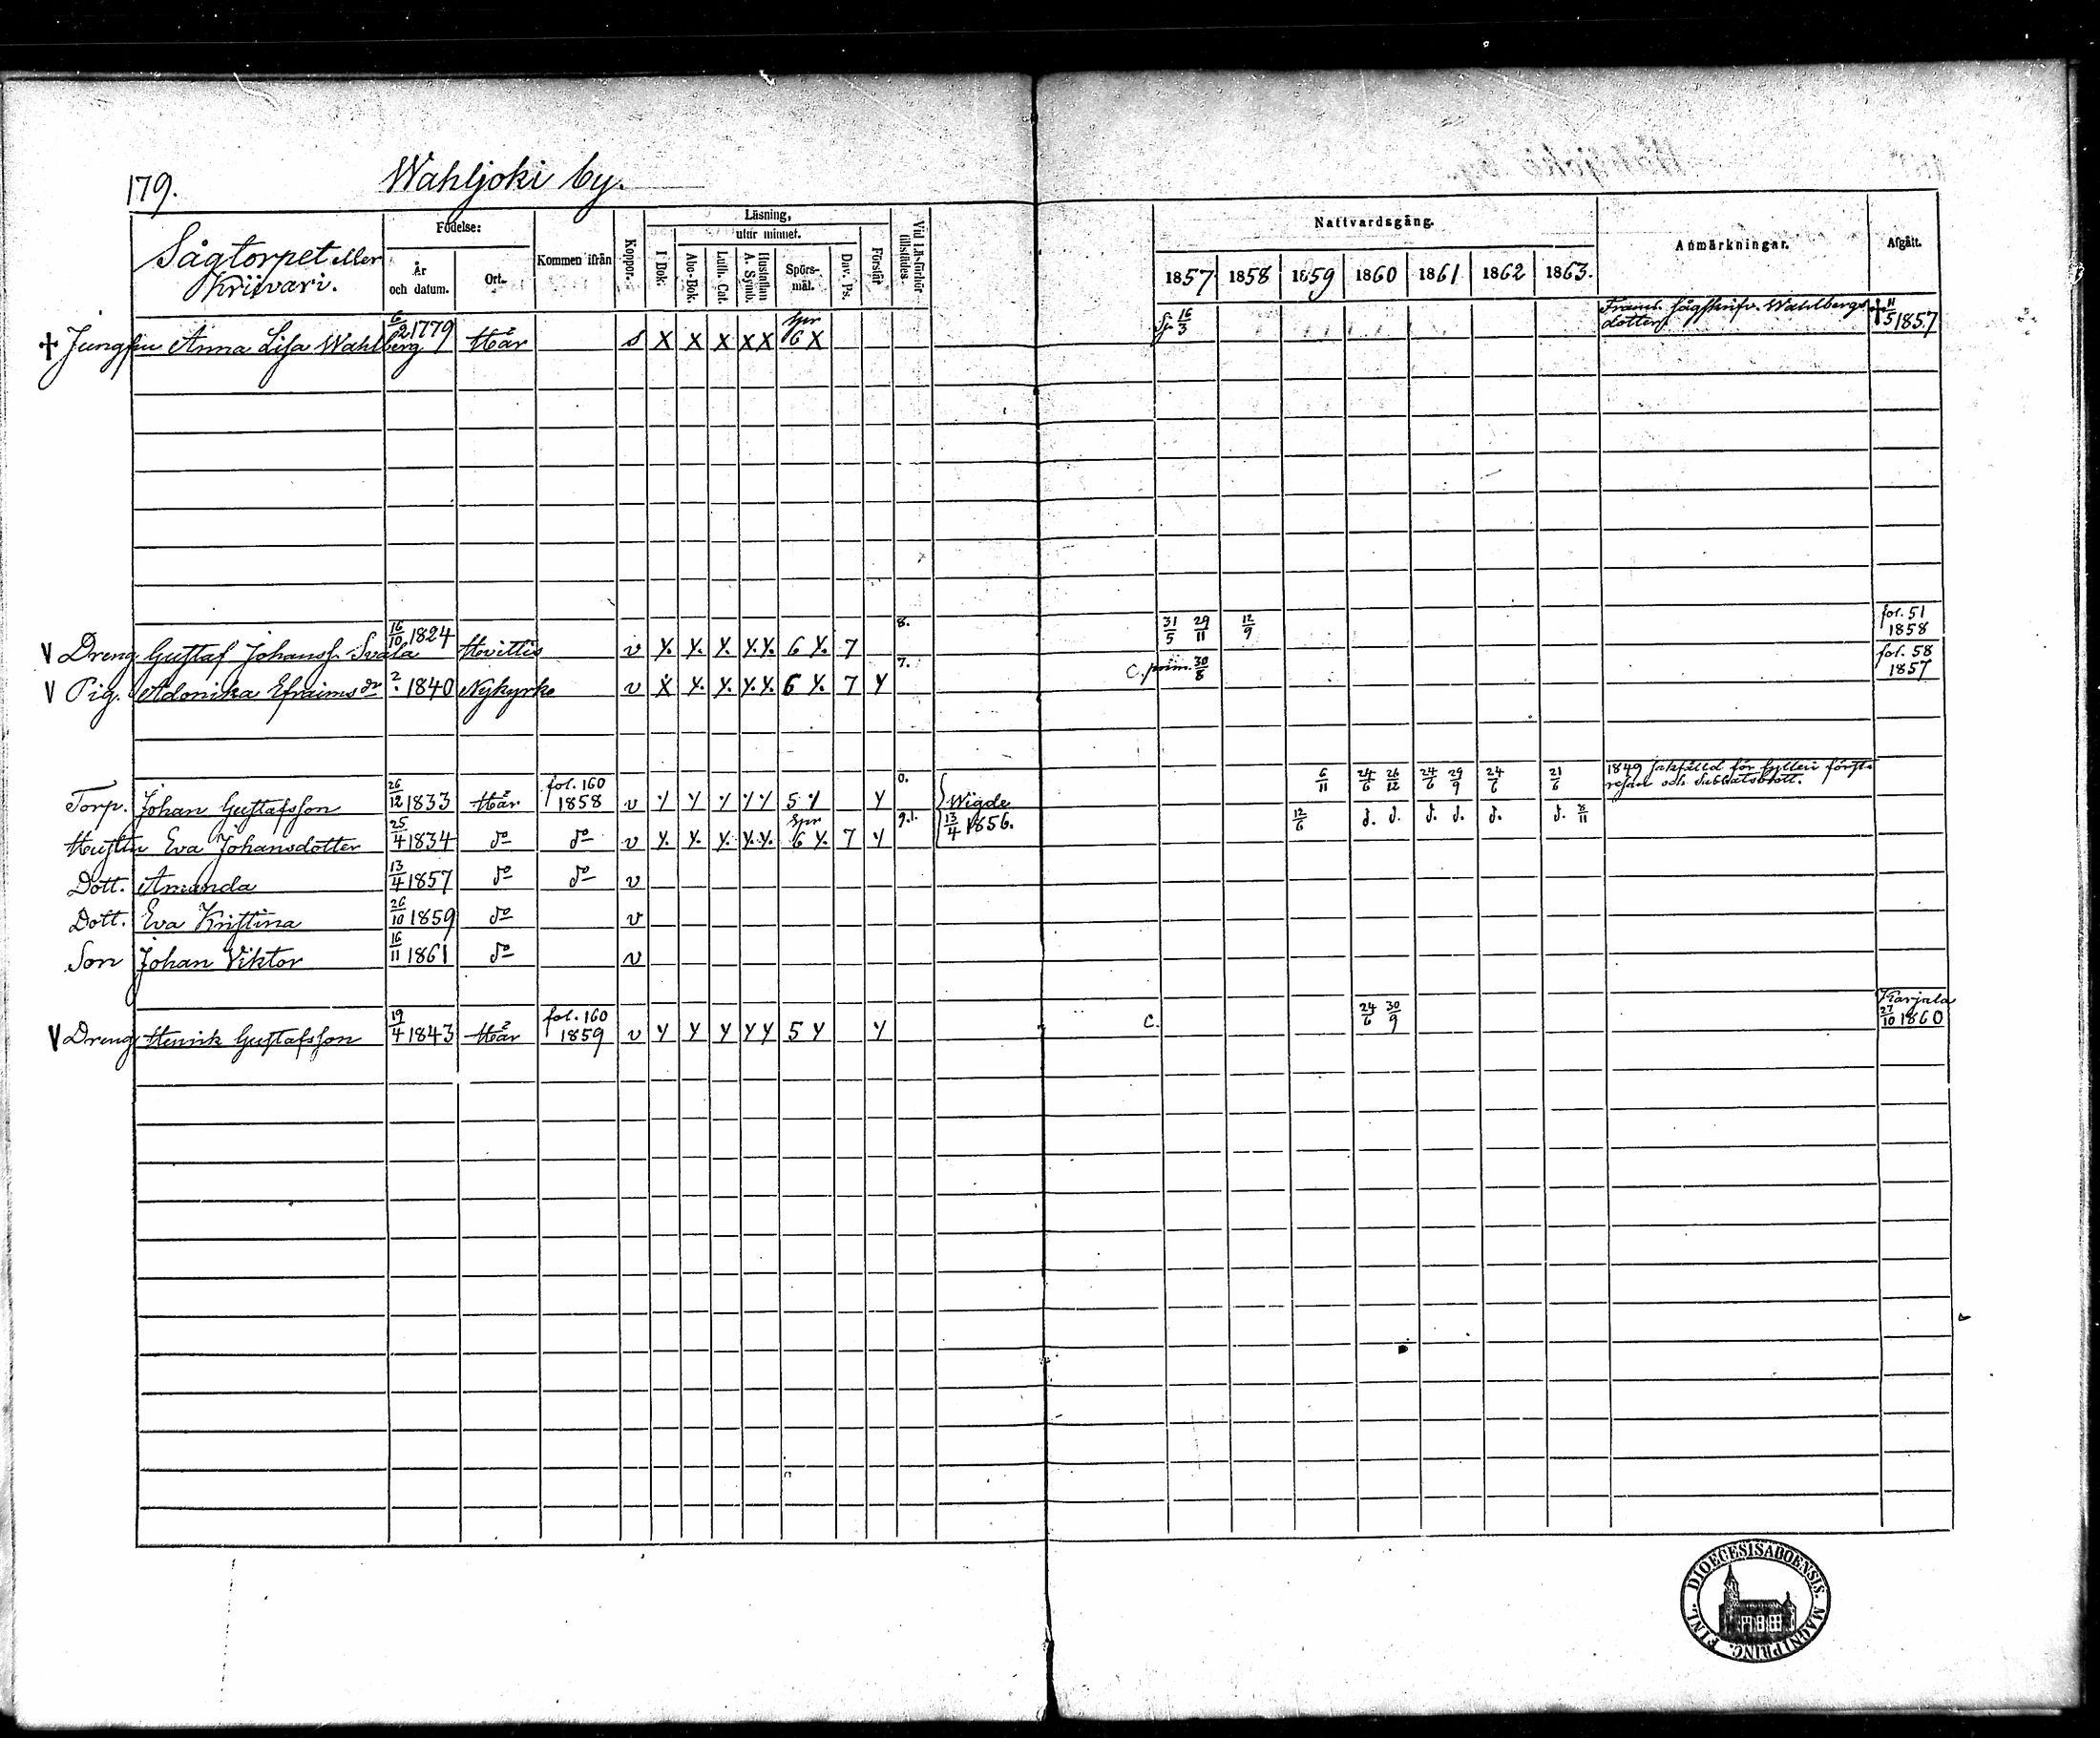 179.
Wahljoki by.
Sågtorpet eller
Kriivari.
Födelse:
År
och datum.
Ort.
Kommen ifrån
Koppor.
Läsning,
utur minnet.
I Bok.
Abc-Bok.
Luth. Cat.
Hustaflan
A. Symb.
Spörs-
mål.
Dav. Ps.
Förstår
Vid Lä-förhör
tillstädes.
Nattvardsgång.
1857 1858 1859 1860 1861 1862 1863.
Anmärkningar.
Afgått.
† Jungfru Anna Lisa Wahlberg 6/2 1779 Hår s X X X X X Spr 6 X 16/3 Framl. Sågskrifv. Wahlbergs dotter. † 11/5 1857
V Dreng Gustaf Johanss. Svala 16/10 1824 Hvittis v Y. Y. Y. Y. Y. 6 Y. 7 8. 31/5 29/11 12/9 fol. 51 1858
V Pig. Adonika Efraims dr 2 1840 Nykyrko v X Y. Y. Y. Y. 6 Y. 7 Y 7. C. prim. 30/8 fol. 58 1857
Torp. Johan Gustafsson 26/12 1833 Hår fol. 160 1858 v Y Y Y Y Y 5 Y Y 0. Wigde 6/11 24/6 26/12 24/6 29/9 24/6 21/6 1849 för fylleri förste resan och Sabbatsbrott.
Hustru Eva Johansdotter 25/4 1834 do do v Y. Y. Y. Y. Y. Spr 6 Y. 7 Y 9.1. 13/4 1856. 12/6 d. d. d. d. d. d. 8/11
Dott. Amanda 13/4 1857 do do v
Dott. Eva Kristina 26/10 1859 do v
Son Johan Viktor 16/11 1861 do v
V Dreng Henrik Gustafsson 19/4 1843 Hår fol. 160 1859 v Y Y Y Y Y 5 Y Y C. 24/6 30/9 Karjala 27/10 1860
DIOECESIS ABOENSIS. MAGNI PRINC. FINL.